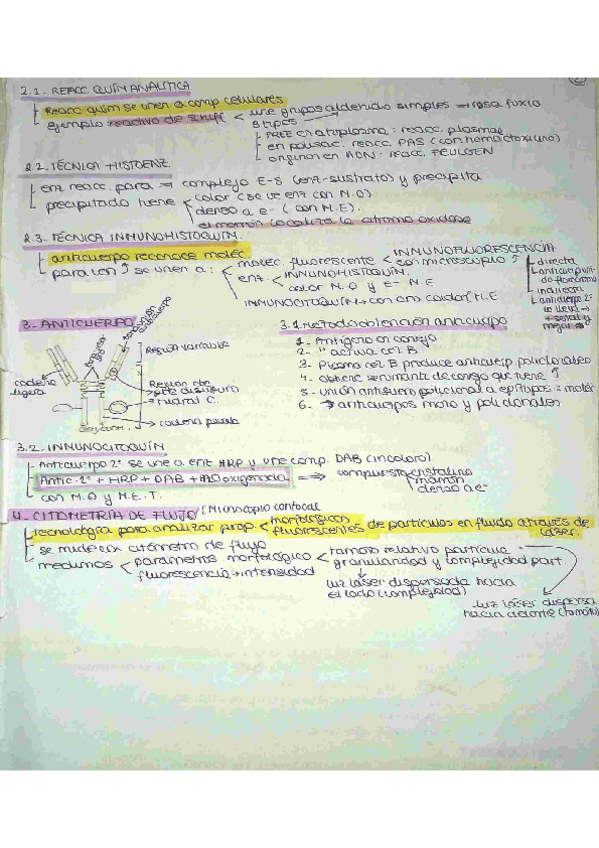 2.1- REACC. QUÍM ANALITICA
Reacc quím se unen a comp celulares
ejemplo reactivo de schiff < une grupos aldehido simples → rosa fuxia
3 tipos
FREE en citoplasma: reacc. plasmal
en polisac. reacc. PAS (con hematoxilina)
originan en ADN: reacc. FEULGEN
2.2. TÉCNICA HISTOENZ.
enz reacc. para → complejo E-S (enz-sustrato) y precipita
precipitado tiene < color (se ve ent con M.O)
denso a e- (con M.E).
el marrón localiza la citomo oxidasa
2.3. TÉCNICA INMUNOHISTOQUÍM.
anticuerpo reconoce moléc.
para ver ↑ se unen a: < moléc. fluorescente < INMUNOFLUORESCENCIA
con microscopio ↑
directa
indirecta
anticuerpo 2º
lo lleva →
+ señal y
mejor
enz. < INMUNOHISTOQUÍM.
color M.O y e- M.E
INMUNOCITOQUÍM → con oro coloidal M.E
3- ANTICUERPO
3.1. Metodo obtención anticuerpo
Región variable
cadena
ligera
Región cte
pte disulfuro
cadena pesada
1. Antígeno en conejo
2. " activa cel B
3. Plasma cel B produce anticuerp. policlonales
4. obtiene serumante de conejo que tiene ↑
5. unión anticuerp policlonal a epítopos ≠ moléc
6. → anticuerpos mono y policlonales
3.2. INMUNOCITOQUÍM
Anticuerpo 2º se une a enz HRP y une comp. DAB (incoloro)
Antic-2º + HRP + DAB + H2O oxigenada ⇒ compuesto cristalino
marrón
denso a e-
con M.O y M.E.T.
4- CITOMETRÍA DE FLUJO [Microscopio confocal
tecnología para analizar prop < morfológicas
fluorescentes de partículas en fluido através de
láser.
se mide con citómetro de flujo
medimos < parámetros morfológico < tamaño relativo partícula
granularidad y complejidad part.
fluorescencia → intensidad
luz láser dispersada hacia
el lado (complejidad)
luz láser dispersa
hacia delante (tamaño)